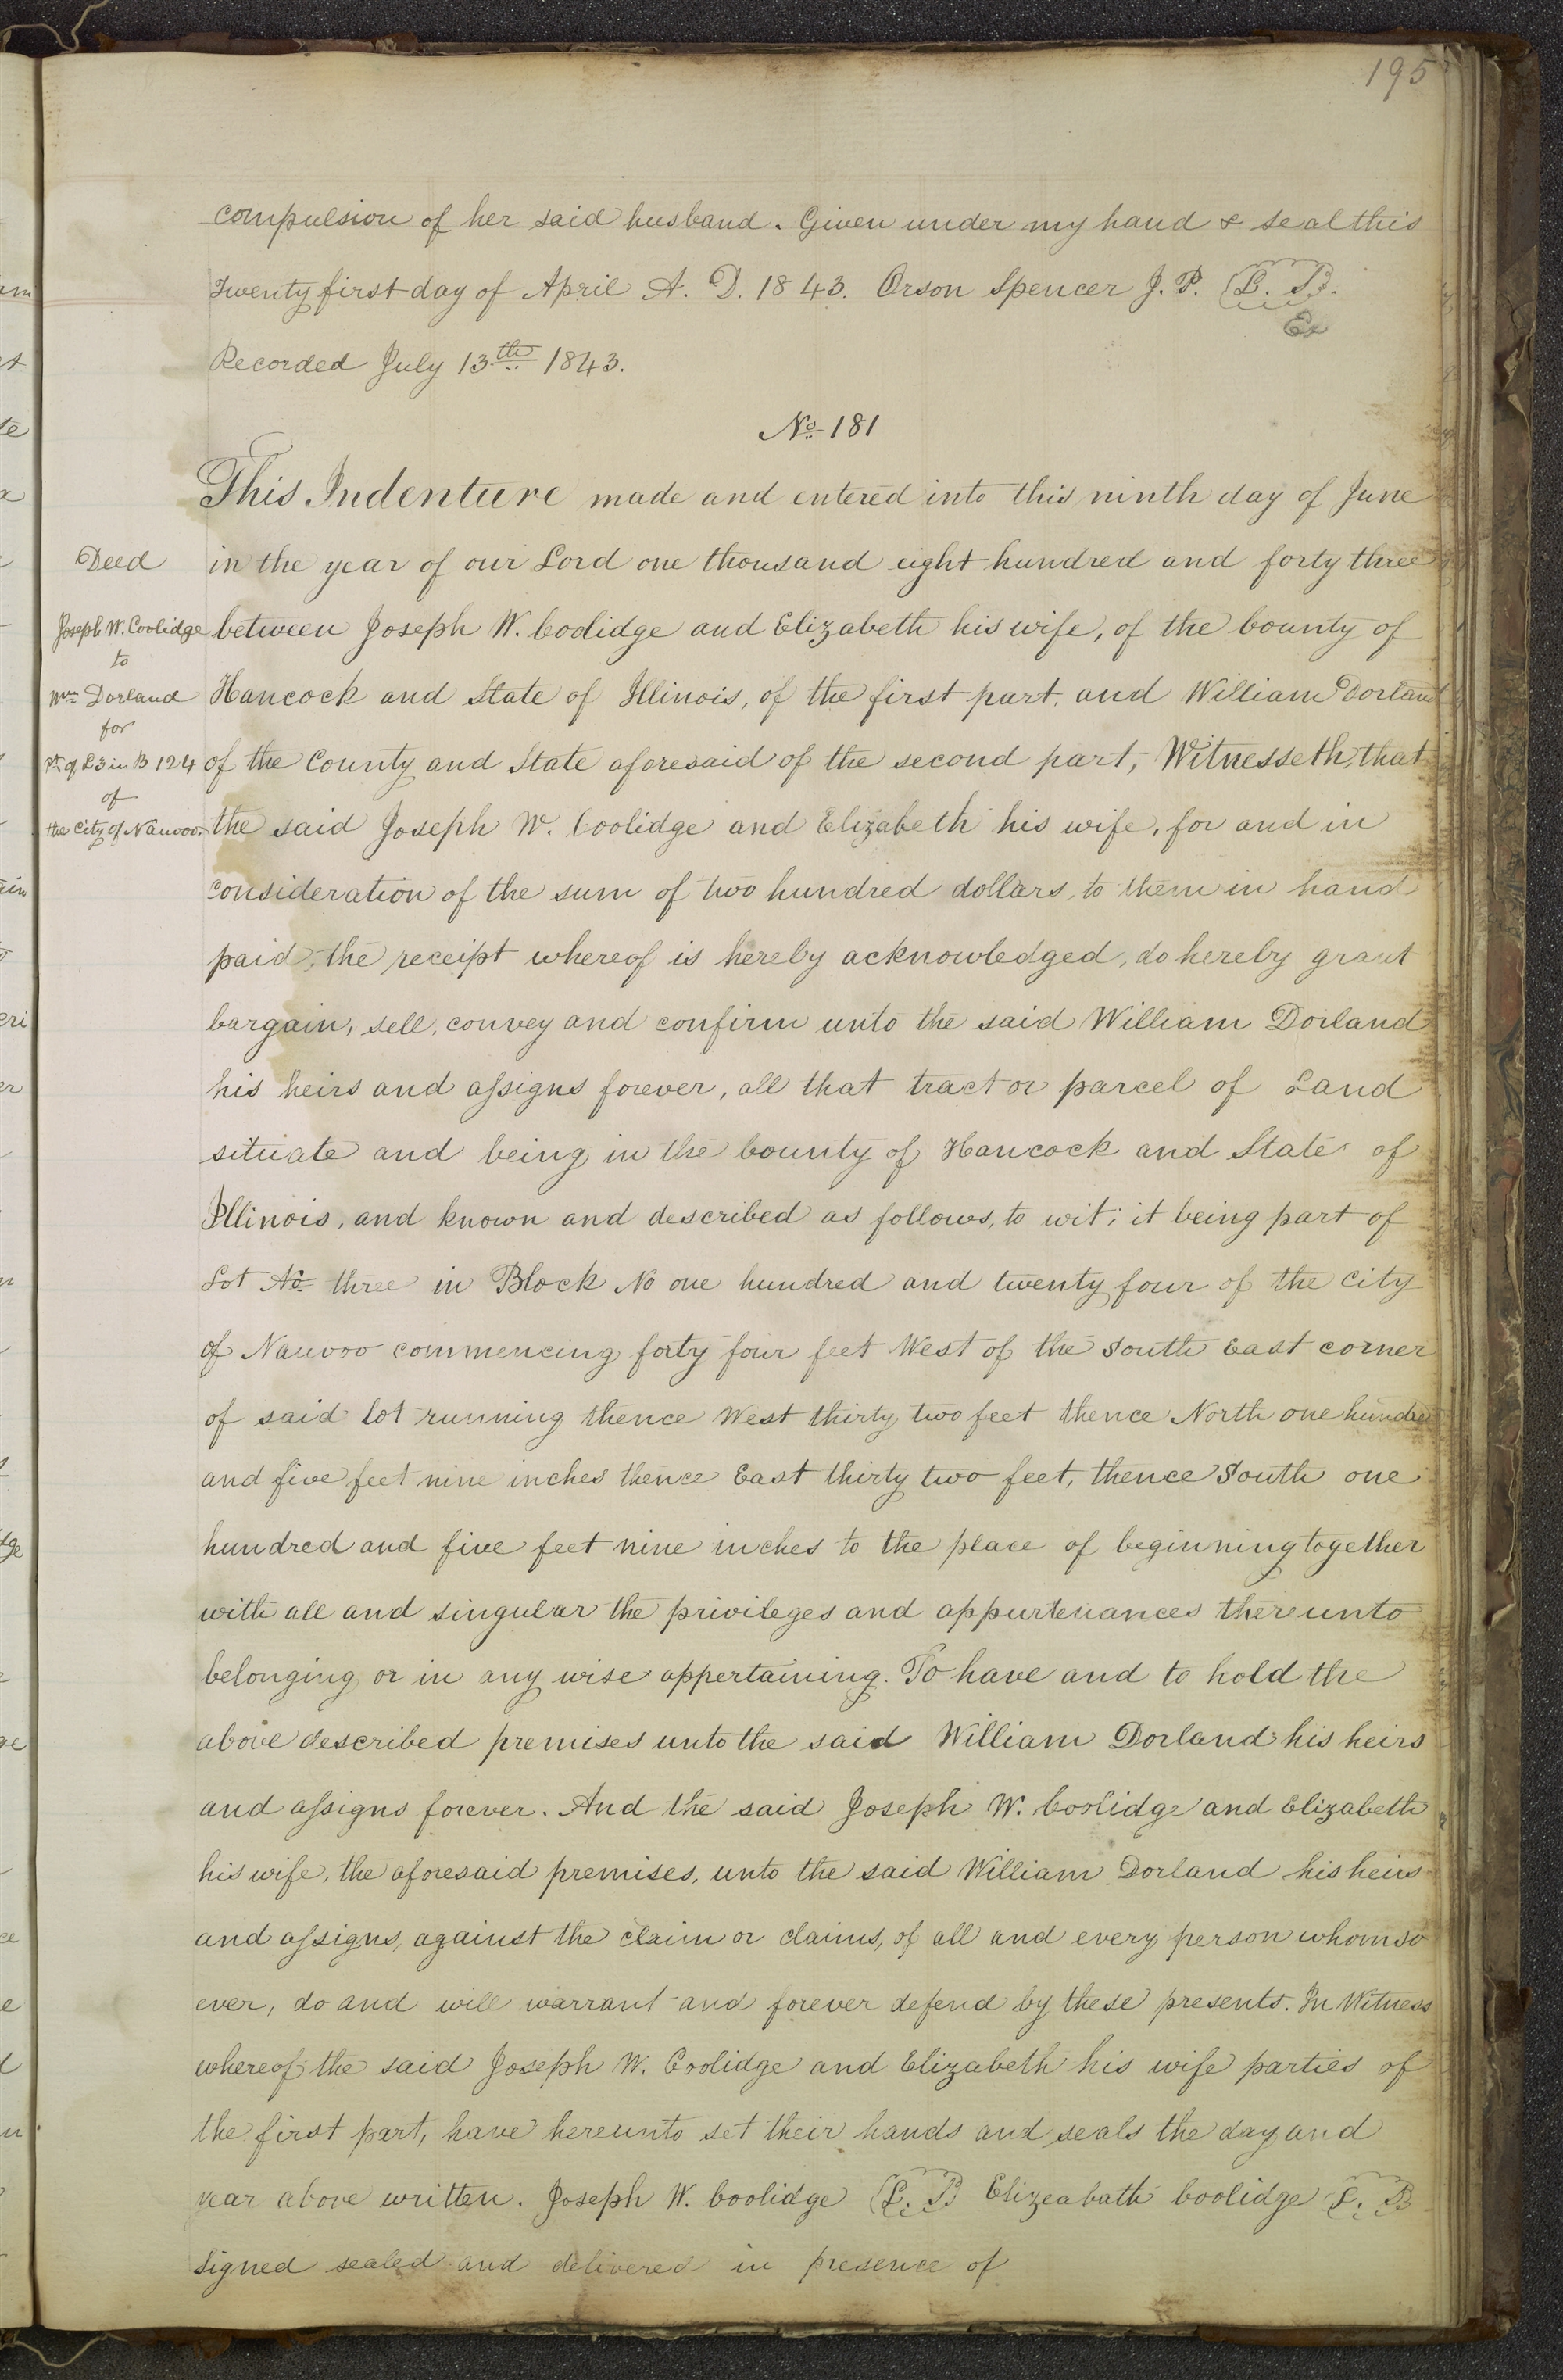 195
compulsion of her said husband. Given under my hand & seal this
twenty first day of April A. D. 1843. Orson Spencer J. P. L. S.
Ex
Recorded July 13th 1843.
No 181
This Indenture made and entered into this ninth day of June
Deed
in the year of our Lord one thousand eight hundred and forty three
Joseph W. Coolidge
between Joseph W. Coolidge and Elizabeth his wife, of the County of
to
Wm Dorland
Hancock and State of Illinois, of the first part. and William Dorland
for
pt of L 3 in B 124
of the County and State aforesaid of the second part, Witnesseth, that
of
the City of Nauvoo.
the said Joseph W. Coolidge and Elizabeth his wife, for and in
consideration of the sum of two hundred dollars, to them in hand
paid, the receipt whereof is hereby acknowledged, do hereby grant
bargain, sell, convey and confirm unto the said William Dorland
his heirs and assigns forever, all that tract or parcel of Land
situate and being in the County of Hancock and State of
Illinois, and known and described as follows, to wit; it being part of
Lot No three in Block No one hundred and twenty four of the City
of Nauvoo commencing forty four feet West of the South East corner
of said lot running thence West thirty two feet thence North one hundred
and five feet nine inches thence East thirty two feet, thence South one
hundred and five feet nine inches to the place of beginning together
with all and singular the privileges and appurtenances thereunto
belonging or in any wise appertaining. To have and to hold the
above described premises unto the said William Dorland his heirs
and assigns forever. And the said Joseph W. Coolidge and Elizabeth
his wife, the aforesaid premises, unto the said William Dorland his heirs
and assigns, against the claim or claims, of all and every person whomso
ever, do and will warrant and forever defend by these presents. In Witness
whereof the said Joseph W. Coolidge and Elizabeth his wife parties of
the first part, have hereunto set their hands and seals the day and
year above written. Joseph W. Coolidge L. S. Elizeabath Coolidge L. S
Signed sealed and delivered in presence of